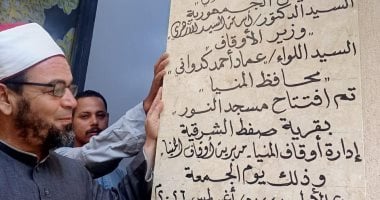 الجمهورية
السيد الدكتور/ أسامة السيد الأزهري
"وزير الأوقاف"
السيد اللواء/ عماد أحمد كدواني
"محافظ المنيا"
تم إفتتاح مسجد النور
بقرية صفط الشرقية
إدارة أوقاف المنيا - مديرية أوقاف المنيا
وذلك يوم الجمعة